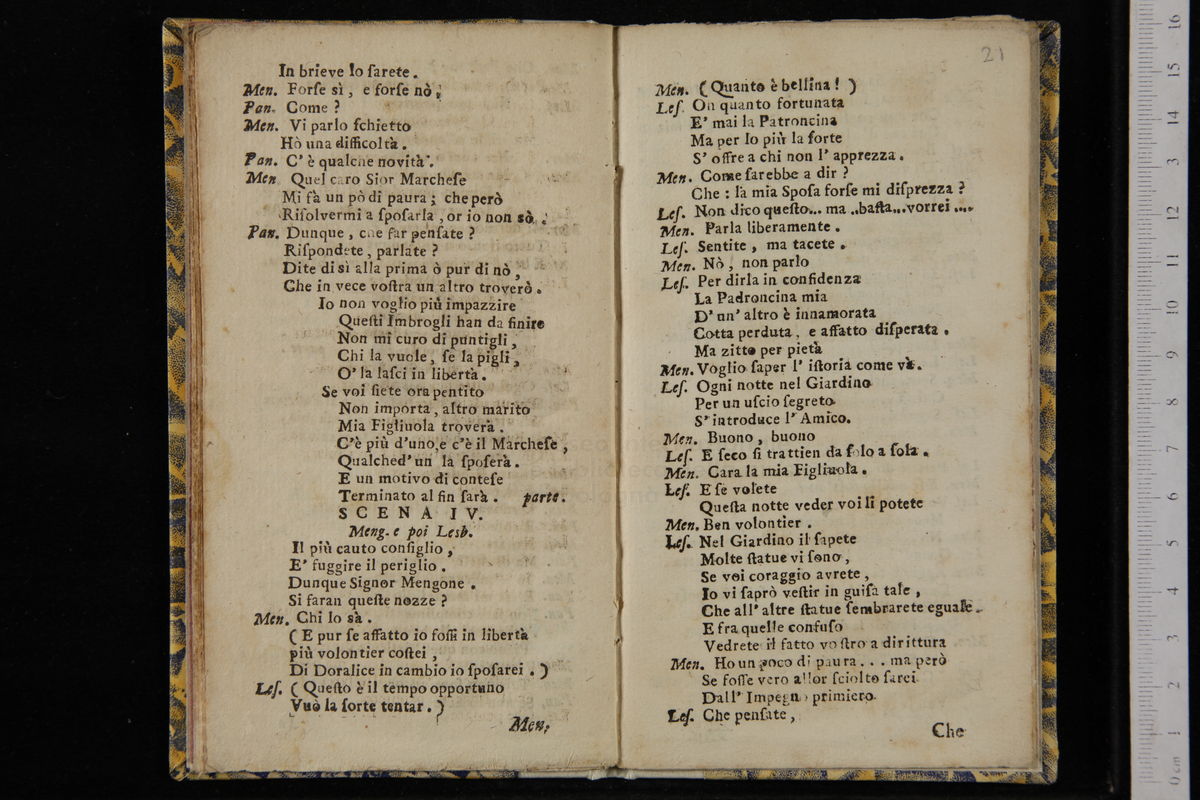 In brieve lo farete.
Men. Forſe sì, e forſe nò;
Pan. Come?
Men. Vi parlo ſchietto
Hò una difficoltà.
Pan. C' è qualche novità.
Men. Quel caro Sior Marcheſe
Mi fà un pò di paura; che però
Riſolvermi a ſpoſarla, or io non sò.
Pan. Dunque, che far penſate?
Riſpondete, parlate?
Dite di sì alla prima ò pur di nò,
Che in vece voſtra un altro troverò.
Io non voglio più impazzire
Queſti Imbrogli han da finire
Non mi curo di puntigli,
Chi la vuole, ſe la pigli,
O' la laſci in libertà.
Se voi ſiete ora pentito
Non importa, altro marito
Mia Figliuola troverà.
C'è più d'uno, e c'è il Marcheſe,
Qualched' un la ſpoſerà.
E un motivo di conteſe
Terminato al fin ſarà. parte.
SCENA IV.
Meng. e poi Lesb.
Il più cauto conſiglio,
E' fuggire il periglio.
Dunque Signor Mengone.
Si faran queſte nozze?
Men. Chi lo sà.
( E pur ſe affatto io foſſi in libertà
più volontier coſtei,
Di Doralice in cambio io ſpoſarei. )
Leſ. ( Queſto è il tempo opportuno
Vuò la ſorte tentar. )
Men.
21
Men. ( Quanto è bellina! )
Leſ. Oh quanto fortunata
E' mai la Patroncina
Ma per lo più la ſorte
S' offre a chi non l' apprezza.
Men. Come ſarebbe a dir?
Che: la mia Spoſa forſe mi diſprezza?
Leſ. Non dico queſto... ma ..baſta...vorrei ....
Men. Parla liberamente.
Leſ. Sentite, ma tacete.
Men. Nò, non parlo
Leſ. Per dirla in confidenza
La Padroncina mia
D' un' altro è innamorata
Cotta perduta, e affatto diſperata.
Ma zitto per pietà
Men. Voglio ſaper l' iſtoria come và.
Leſ. Ogni notte nel Giardino
Per un uſcio ſegreto
S' introduce l' Amico.
Men. Buono, buono
Leſ. E ſeco ſi trattien da ſolo a ſola.
Men. Cara la mia Figliuola.
Leſ. E ſe volete
Queſta notte veder voi li potete
Men. Ben volontier.
Leſ. Nel Giardino il ſapete
Molte ſtatue vi ſono,
Se voi coraggio avrete,
Io vi ſaprò veſtir in guiſa tale,
Che all' altre ſtatue ſembrarete eguale.
E fra quelle confuſo
Vedrete il fatto voſtro a dirittura
Men. Ho un poco di paura... ma però
Se foſſe vero allor ſciolto ſarei
Dall' Impegno primiero.
Leſ. Che penſate,
Che